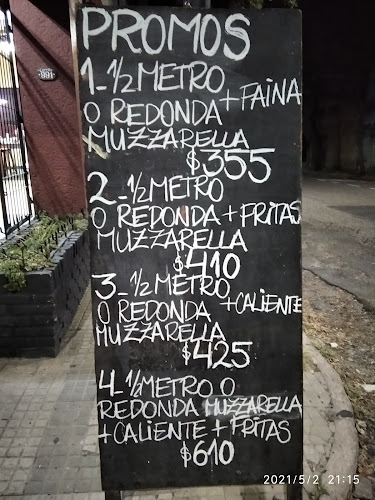 PROMOS
1_ 1/2 METRO
O REDONDA + FAINA
MUZZARELLA
$355
2_ 1/2 METRO
O REDONDA + FRITAS
MUZZARELLA
$410
3_ 1/2 METRO
O REDONDA + CALIENTE
MUZZARELLA
$425
4_ 1/2 METRO O
REDONDA MUZZARELLA
+ CALIENTE + FRITAS
$610
2021/5/2 21:15